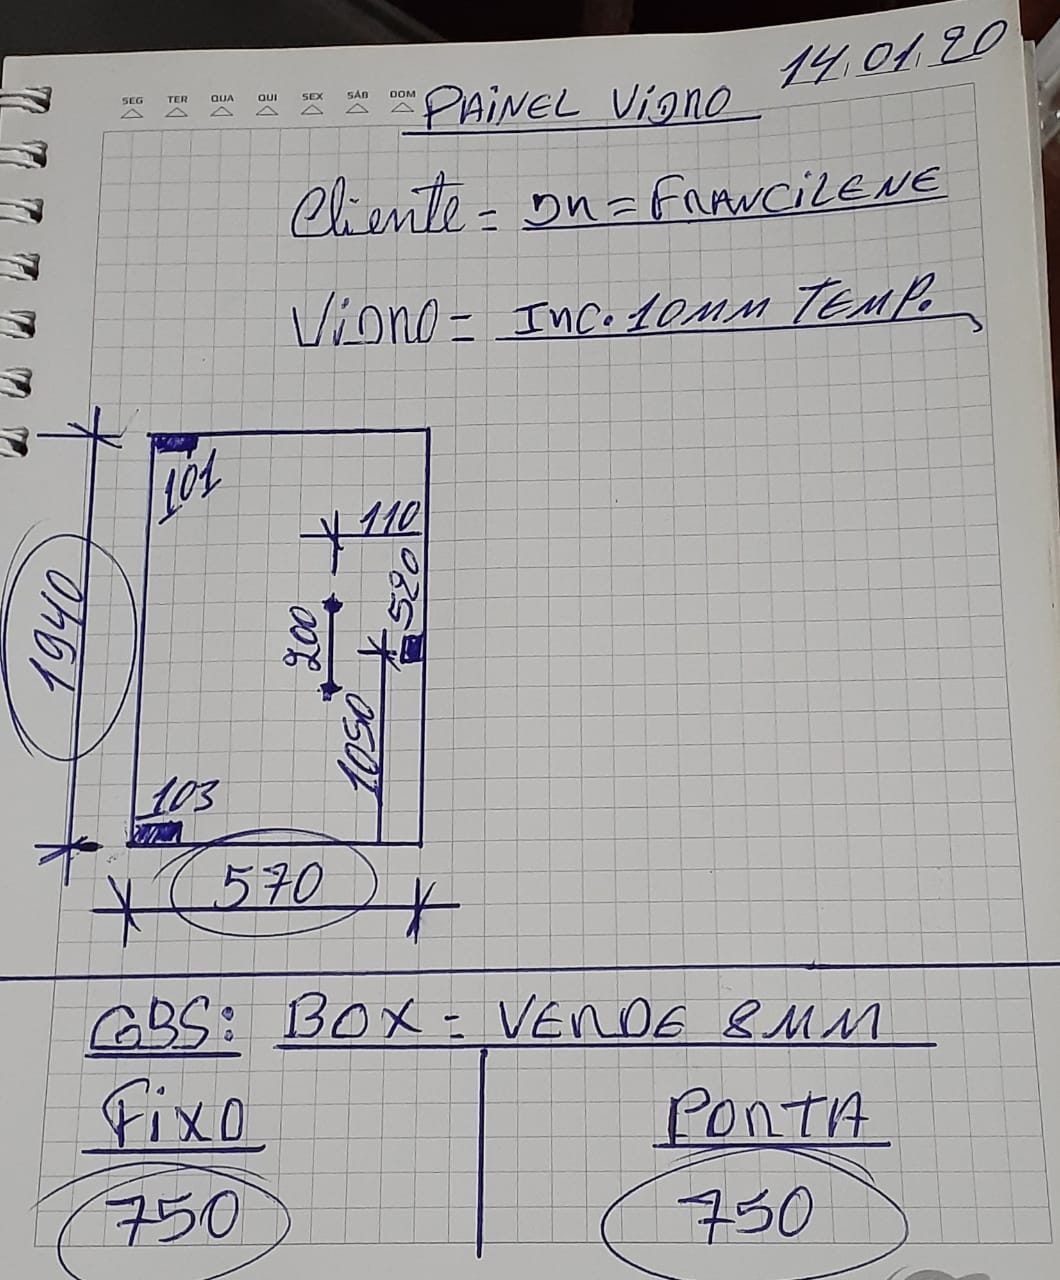 14.01.20
SEG TER QUA QUI SEX SÁB DOM
PAINEL VIDRO
Cliente = DR = FRANCILENE
VIDRO = INC. 10MM TEMP.
101
110
520
200
1940
1050
103
570
OBS: BOX = VERDE 8MM
FIXO
PORTA
750
750